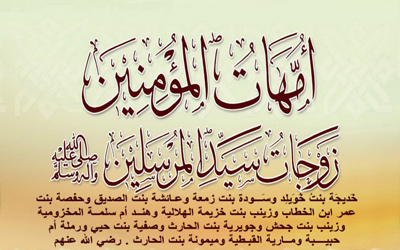 أمهات المؤمنين
زوجات سيد المرسلين صلى الله عليه وآله وسلم
خديجة بنت خويلد وسودة بنت زمعة وعائشة بنت الصديق وحفصة بنت
عمر ابن الخطاب وزينب بنت خزيمة الهلالية وهند أم سلمة المخزومية
وزينب بنت جحش وجويرية بنت الحارث وصفية بنت حيي ورملة أم
حبيبة ومارية القبطية وميمونة بنت الحارث . رضي الله عنهم